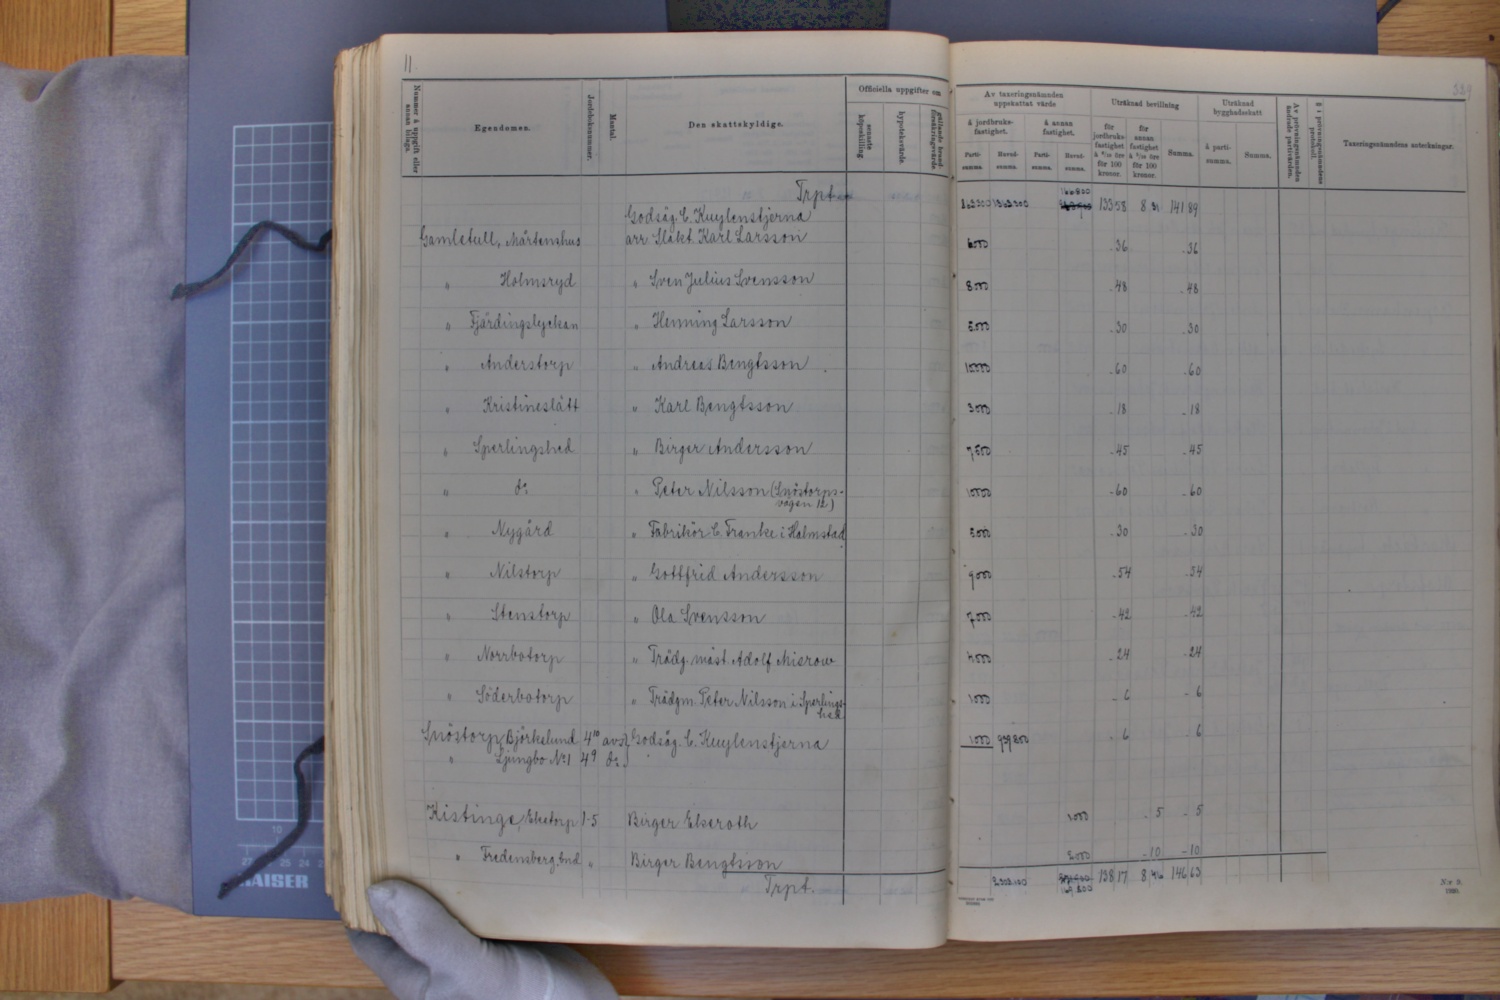 11.
Nummer å uppgift eller annan bilaga.
Egendomen.
Jordeboksnummer.
Mantal.
Den skattskyldige.
Officiella uppgifter om
senaste köpeskilling.
hypoteksvärde.
gällande brandförsäkringsvärde.
Av taxeringsnämnden uppskattat värde
å jordbruksfastighet.
å annan fastighet.
Partisumma.
Huvudsumma.
Partisumma.
Huvudsumma.
Uträknad bevillning
för jordbruksfastighet
för annan fastighet
för 100 kronor.
för 100 kronor.
Summa.
Uträknad bygghadsskatt
å partisumma.
Summa.
Av prövningsnämnden ändrade partivärden.
§ i prövningsnämndens protokoll.
Taxeringsnämndens anteckningar.
Trpt 133 58 8 31 141 89
Godsäg. C. Kuylenstjerna
Gamletull, Mårtenshus arr. Släkt. Karl Larsson 6000 -36 -36
" Holmsryd " Sven Julius Svensson 8000 -48 -48
" Fjärdingslyckan " Henning Larsson 5000 -30 -30
" Anderstorp " Andreas Bengtsson 10000 -60 -60
" Kristineslätt " Karl Bengtsson 3000 -18 -18
" Sperlingshed " Birger Andersson 7500 -45 -45
" d:o " Peter Nilsson (Snöstorps-
vägen 12) 10000 -60 -60
" Nygård " Fabrikör C. Franke i Halmstad 5000 -30 -30
" Nilstorp " Gottfrid Andersson 9000 -54 -54
" Stenstorp " Ola Svensson 7000 -42 -42
" Norrbotorp " Trädg.mäst. Adolf Misrow 4000 -24 -24
" Söderbotorp " Trädgm. Peter Nilsson i Sperlings-
hed 1000 -6 -6
Snöstorp, Björkelund 4¹⁰ avs. Godsäg. C. Kuylenstjerna 1000 -6 -6
" Ljungbo No 1 4⁹ d:o
Kistinge, Eketorp 1-5 Birger Elseroth 1000 -5 -5
" Fredensberg " Birger Bengtsson 2000 -10 -10
Trpt. 138 17 8 46 146 63
KAISER